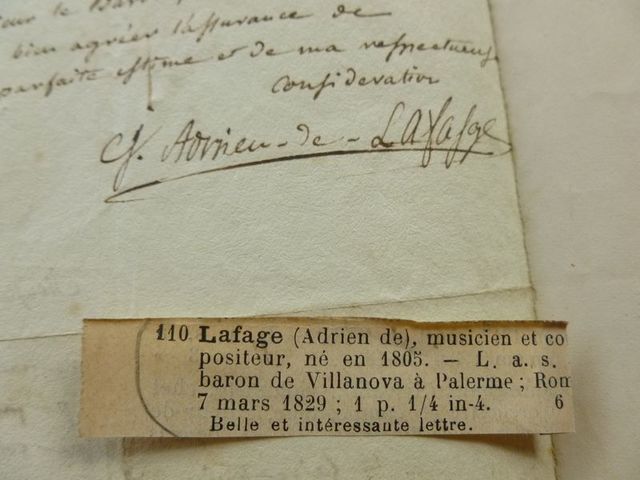 le Baro
bien agréer l'assurance de
parfaite estime et de ma respectueuse
consideration
J. Adrien-de-Lafasge
110 Lafage (Adrien de), musicien et co
positeur, né en 1805. — L. a. s.
baron de Villanova à Palerme ; Rom
7 mars 1829 ; 1 p. 1/4 in-4. 6
Belle et intéressante lettre.